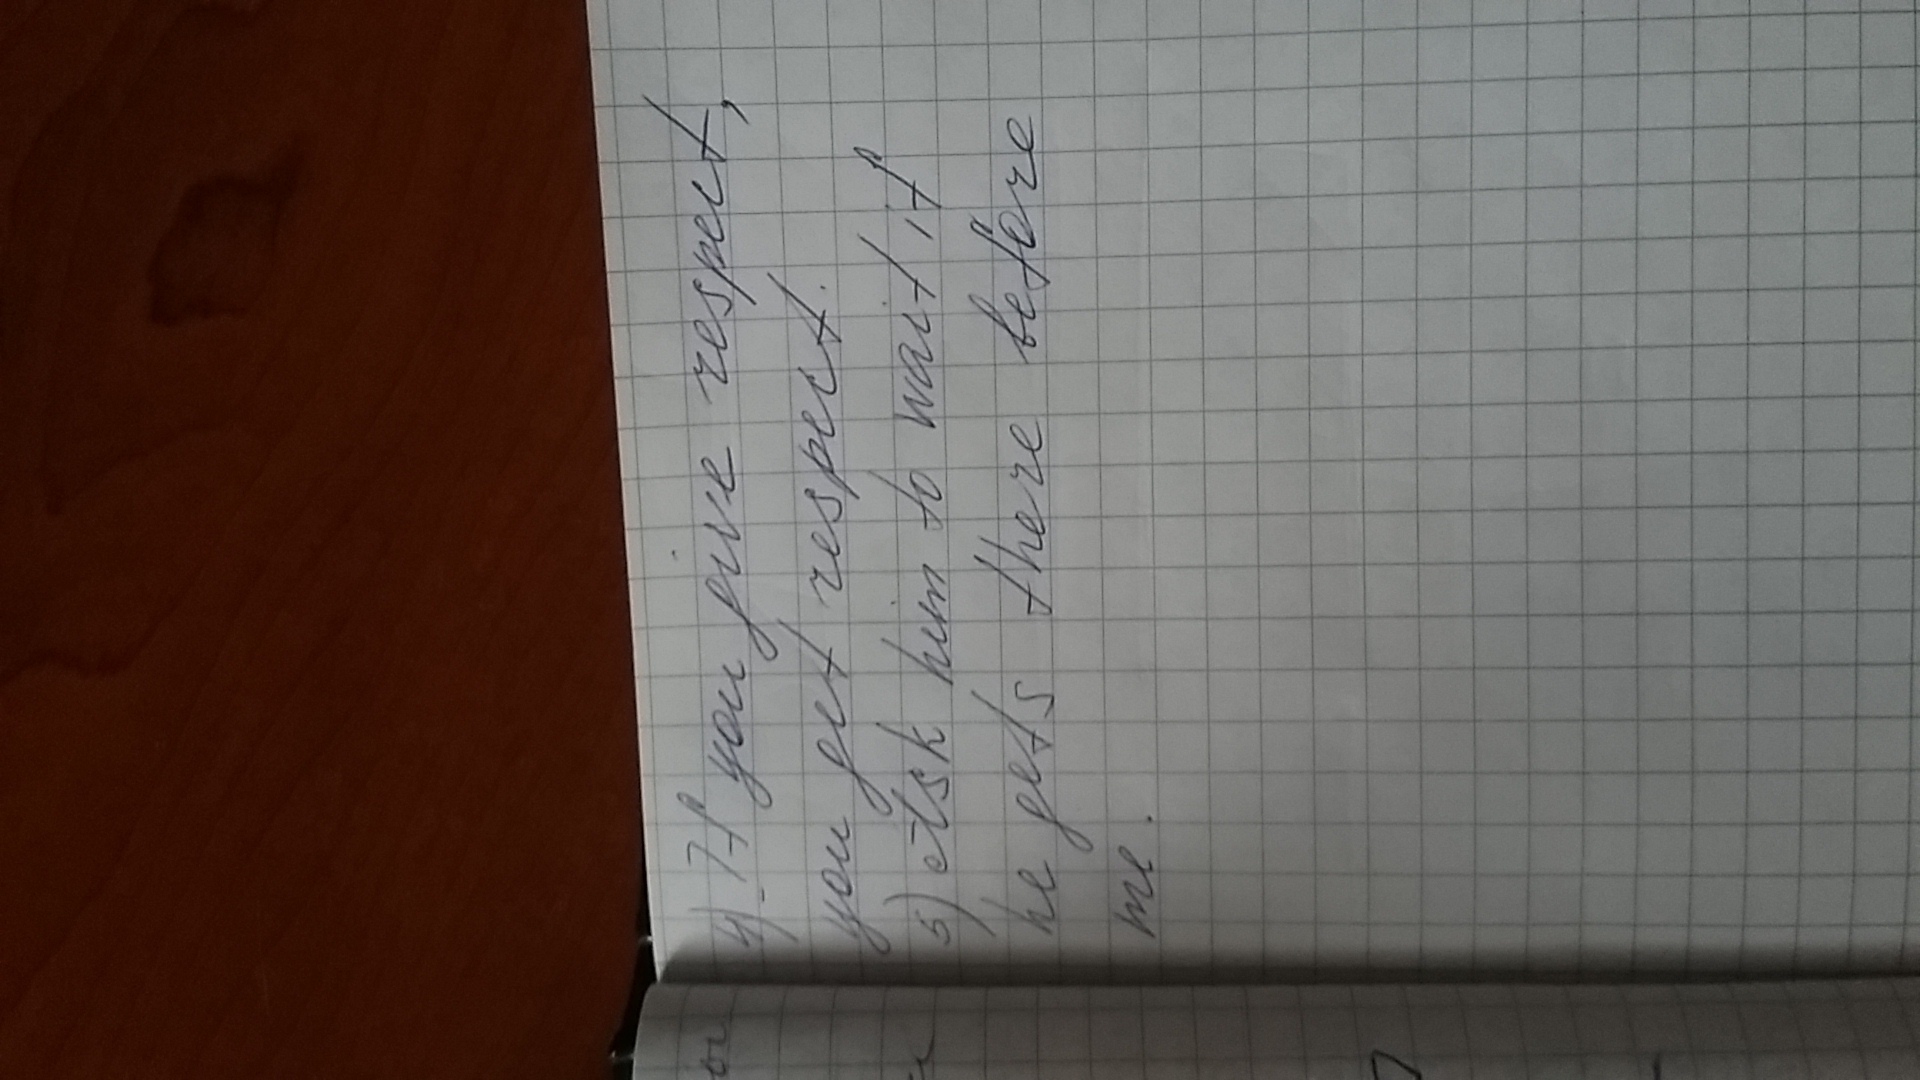 4) If you give respect,
you get respect.
5) Ask him to wait, if
he gets there before
me.